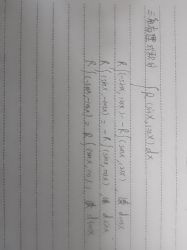 三角有理式积分 ∫R(sinx, cosx)dx
R(-sinx, cosx) = -R(sinx, cosx), 凑 dcosx
R(sinx, -cosx) = -R(sinx, cosx), 凑 dsinx
R(-sinx, -cosx) = R(sinx, cosx), 凑 dtanx